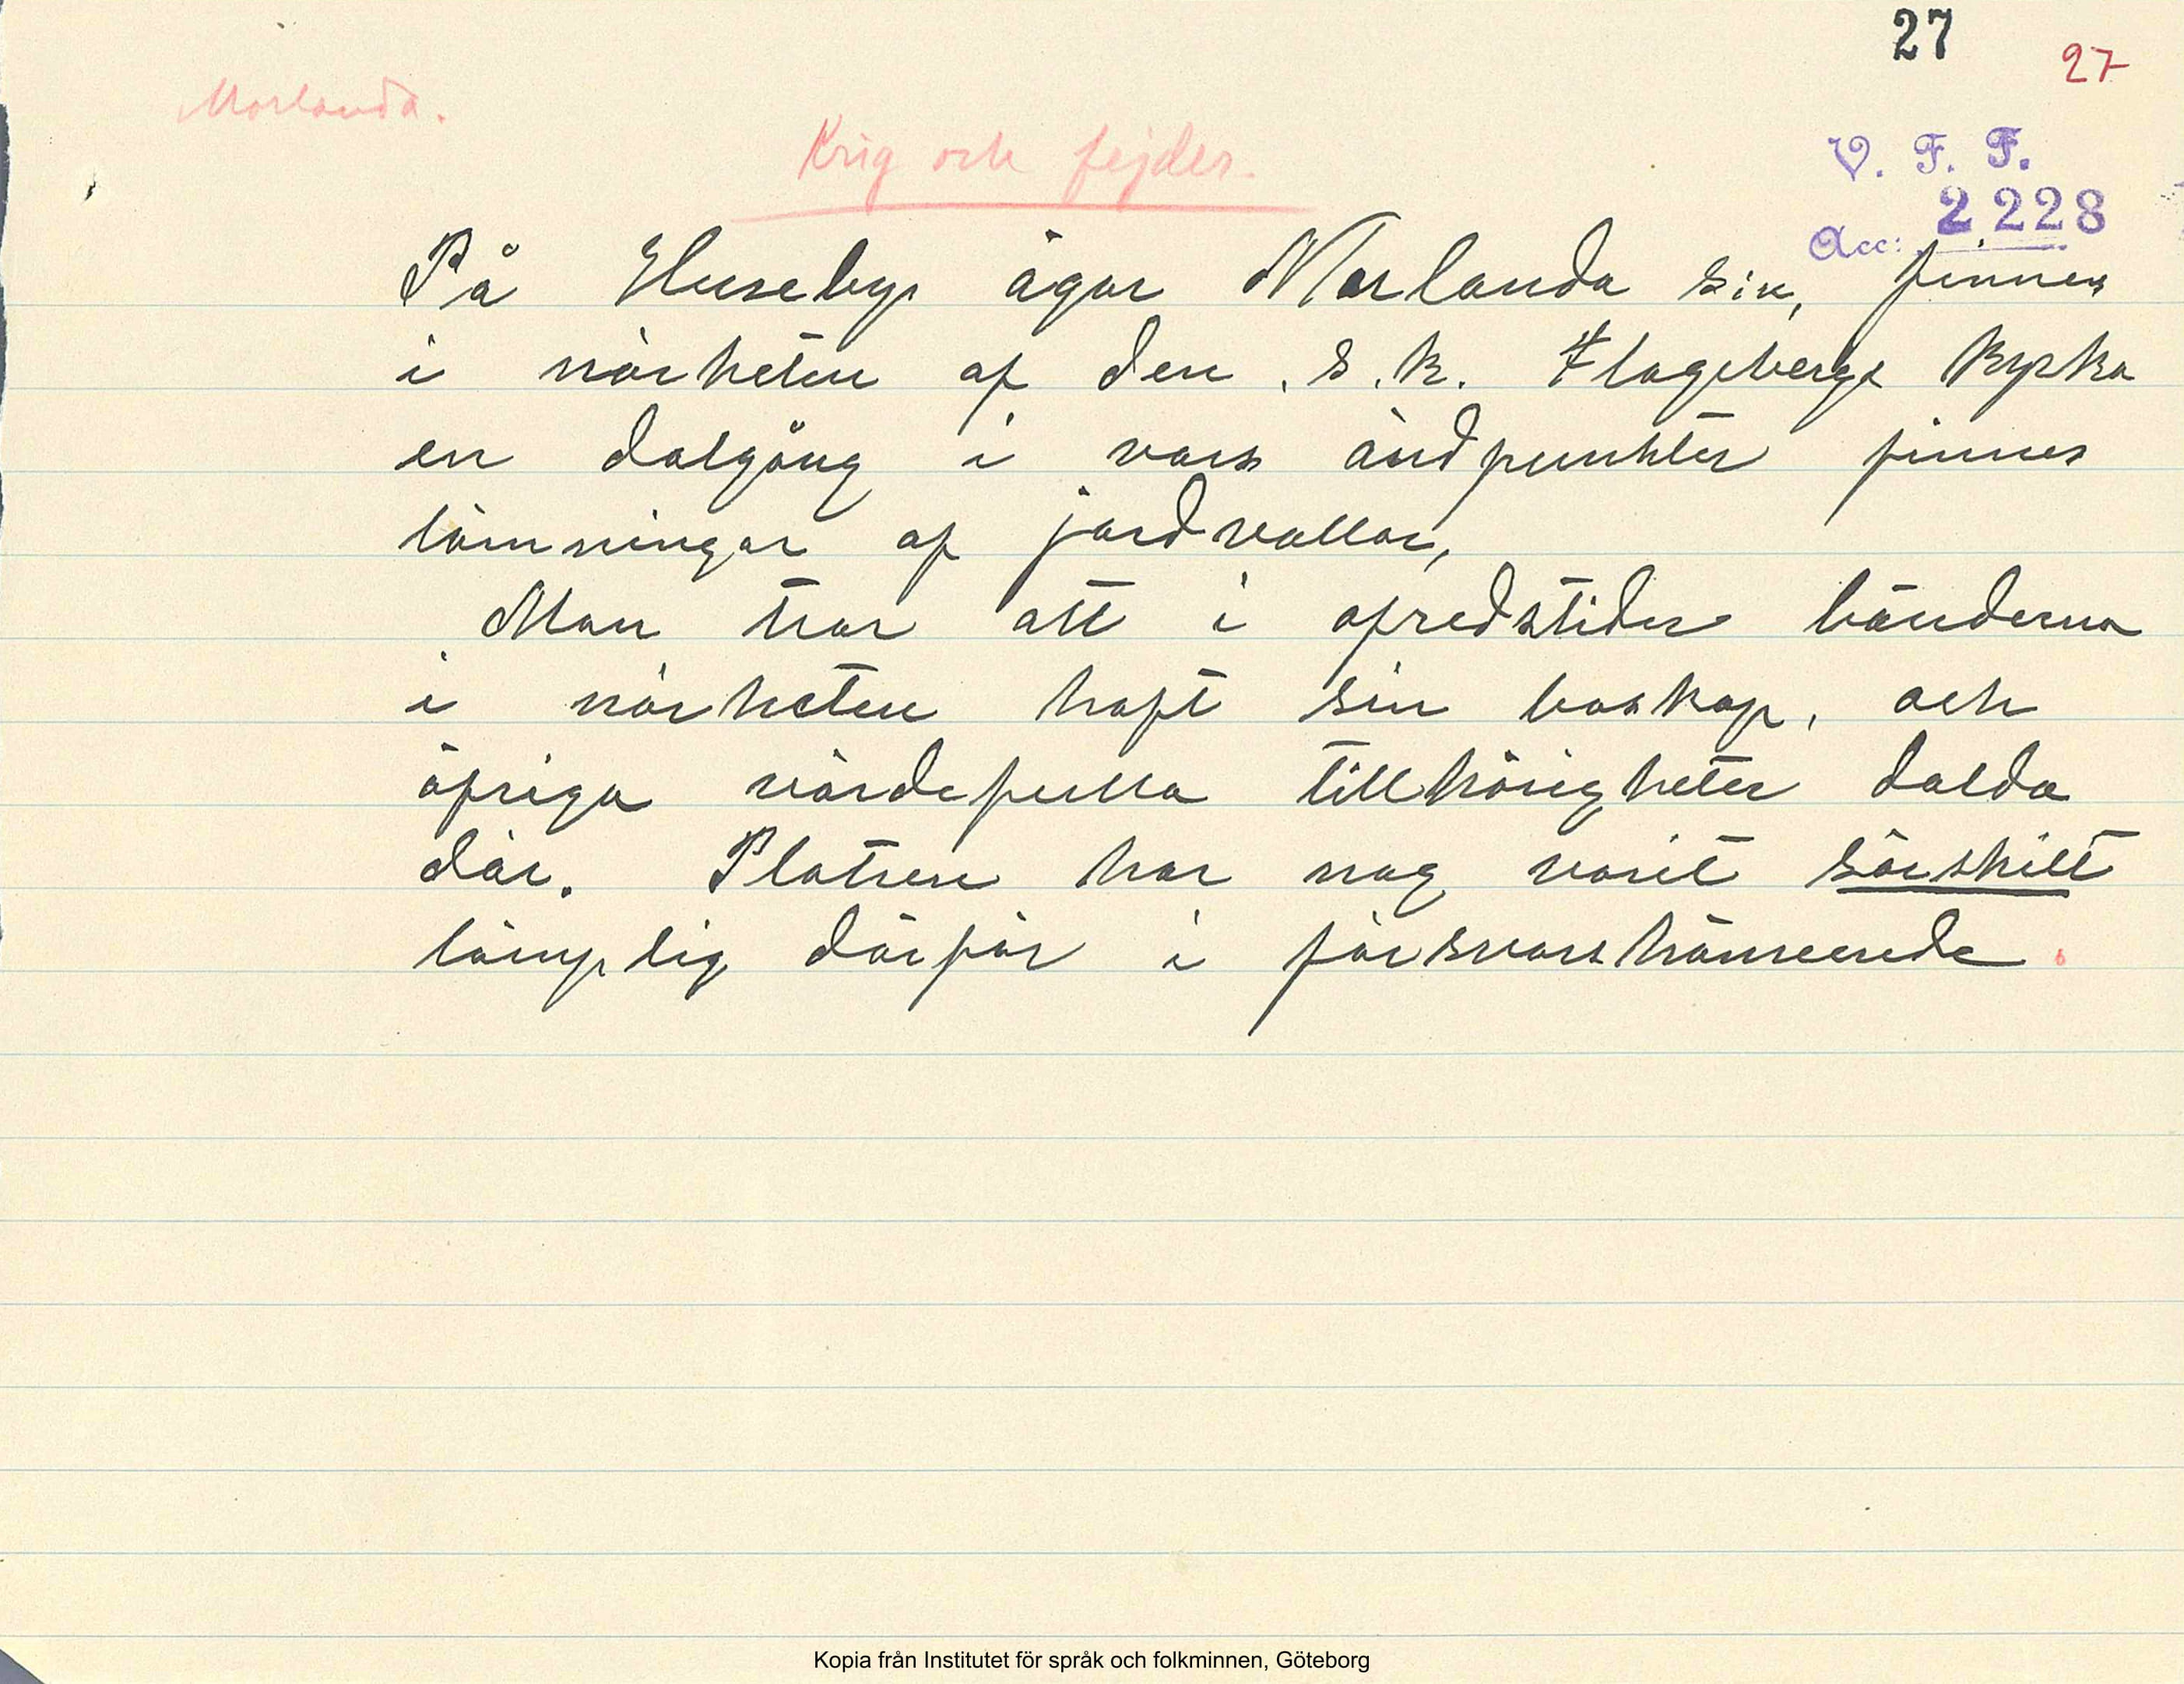 27
27
Morlanda.
Krig och fejder.
V. F. F.
Acc: 2228
På Huseby ägor Morlanda s:n, finnes
i närheten af den s.k. Flagebergs Kyrka
en dalgång i vars ändpunkter finnes
lämningar af jordvallar,
Man tror att i ofredstider bönderna
i närheten haft sin boskap, och
öfriga värdefulla tillhörigheter dolda
där. Platsen har nog varit särskilt
lämplig därför i försvarshänseende.
Kopia från Institutet för språk och folkminnen, Göteborg